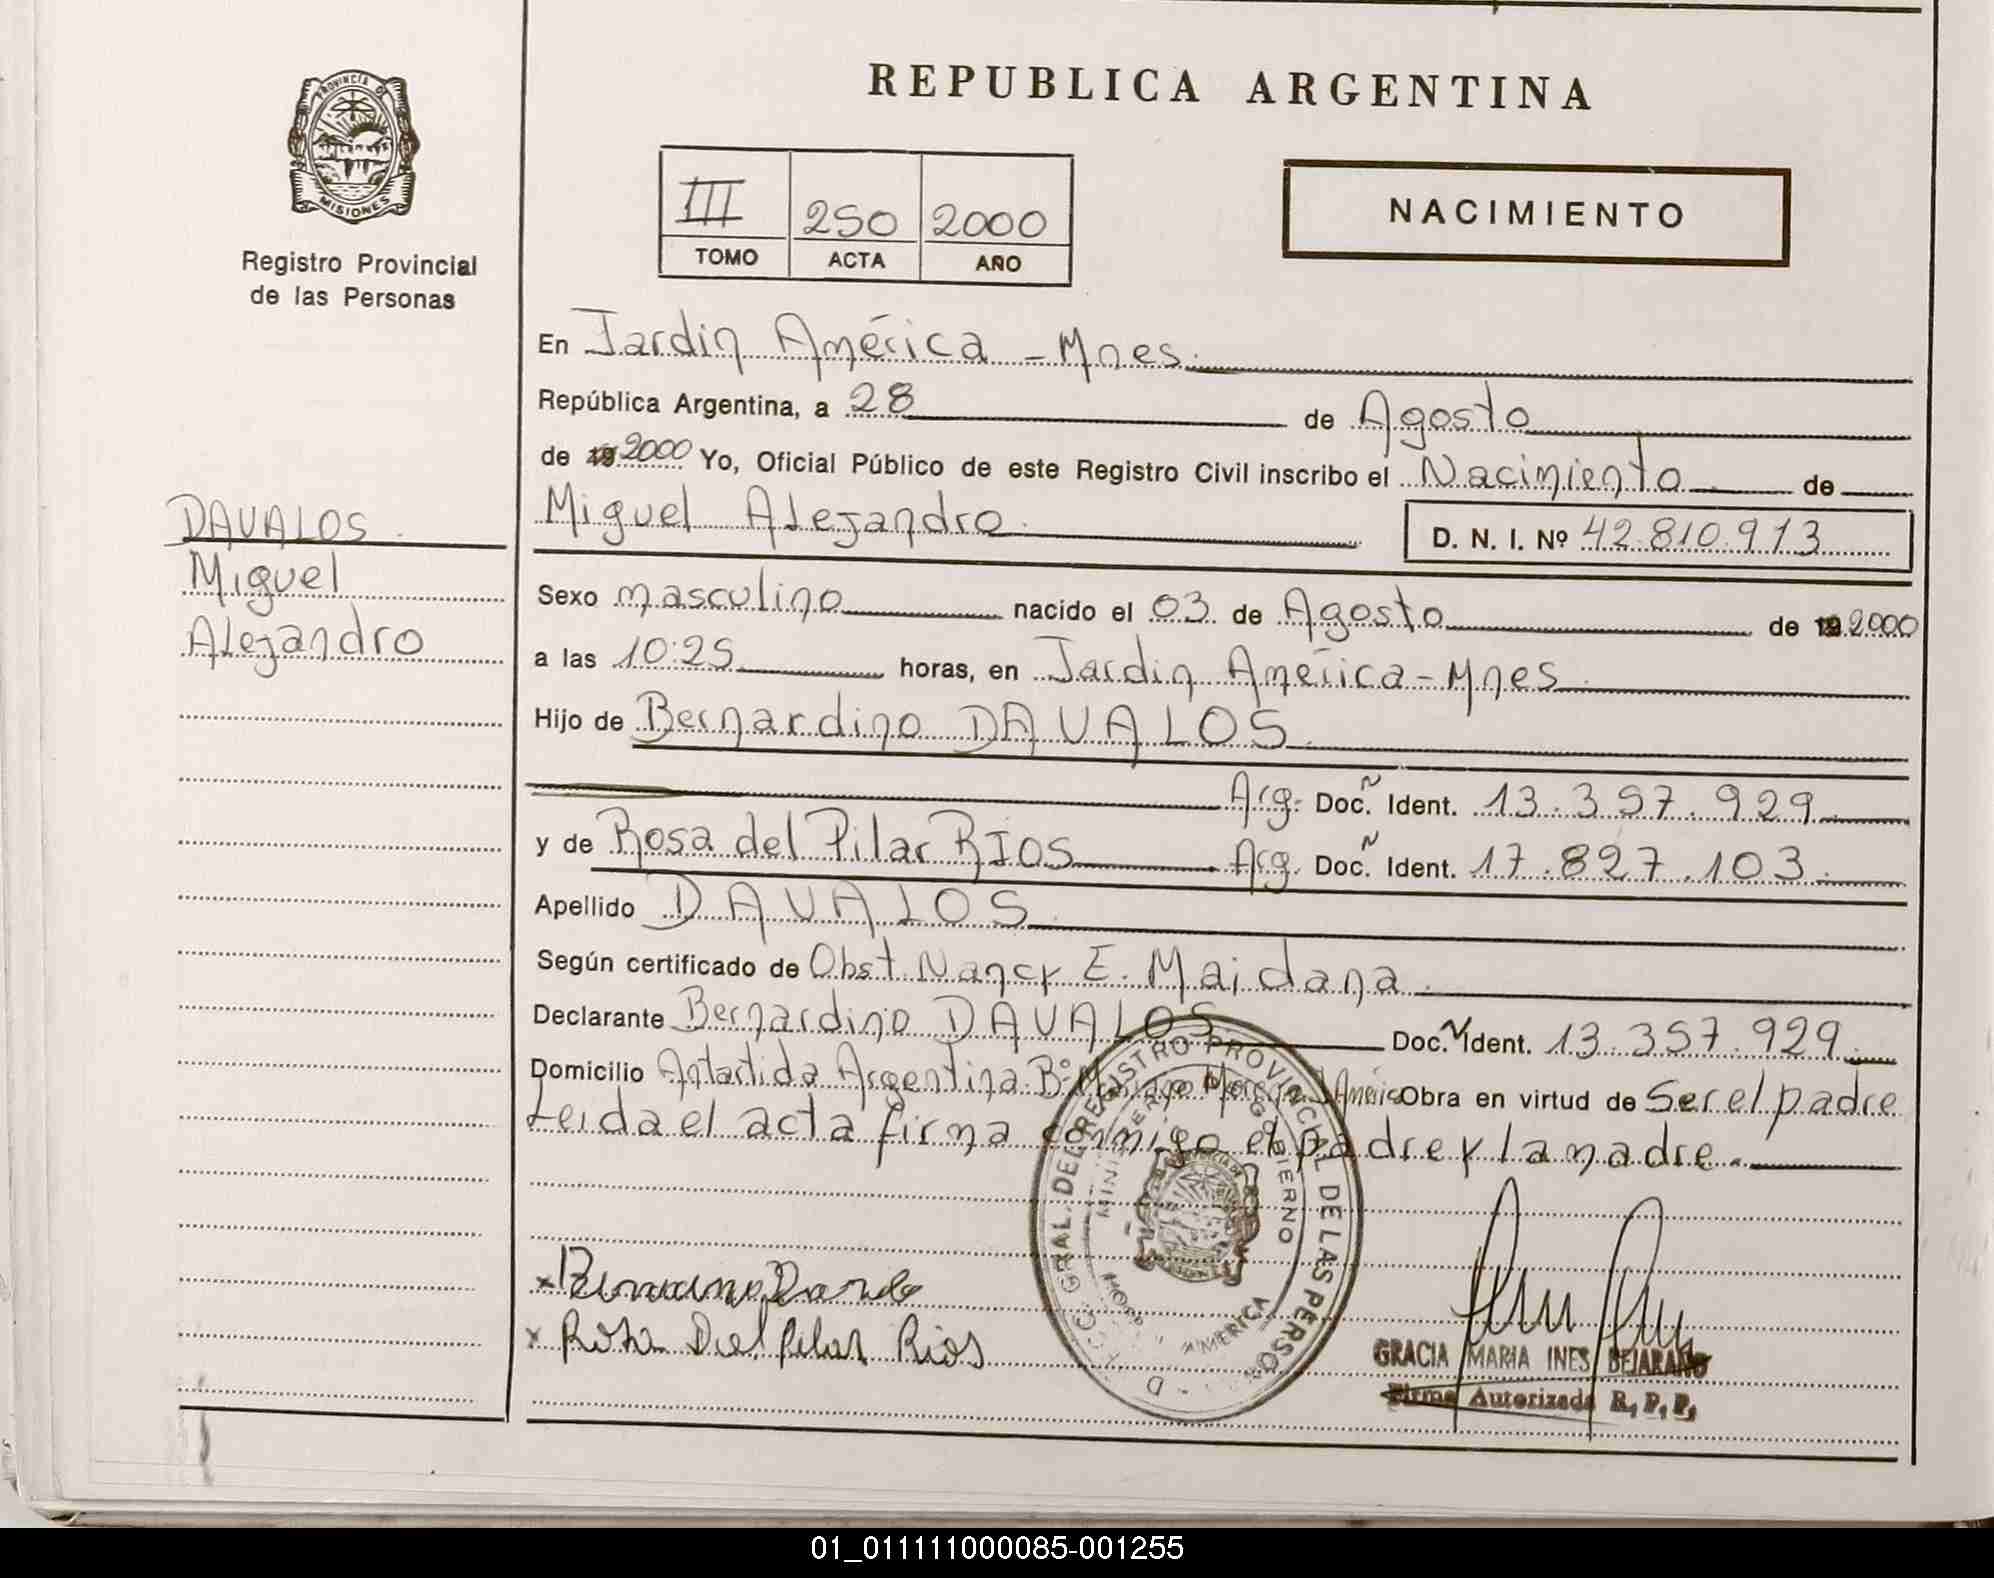 REPUBLICA ARGENTINA
PROVINCIA DE
MISIONES
Registro Provincial
de las Personas
III 250 2000
TOMO ACTA AÑO
NACIMIENTO
En Jardin América - Mnes.
República Argentina, a 28 de Agosto
de 19 2000 Yo, Oficial Público de este Registro Civil inscribo el Nacimiento de
Miguel Alejandro. D. N. I. Nº 42.810.913
DAVALOS.
Miguel
Alejandro
Sexo masculino nacido el 03 de Agosto de 19 2000
a las 10:25 horas, en Jardin América - Mnes.
Hijo de Bernardino DAVALOS.
Arg. Doc. N Ident. 13.357.929
y de Rosa del Pilar RIOS Arg. Doc. N Ident. 17.827.103.
Apellido DAVALOS.
Según certificado de Obst. Nancy E. Maidana.
Declarante Bernardino DAVALOS Doc. N Ident. 13.357.929.
Domicilio Antartida Argentina Bº Mariano Moreno J. Améric Obra en virtud de Ser el padre
Leida el acta firma conmigo el padre y la madre.
GRAL. DEL REGISTRO PROVINCIAL DE LAS PERSO
MINISTERIO DE GOBIERNO
AMERICA
x Rosa Del Pilar Rios
GRACIA MARIA INES BEJARANO
Firma Autorizada R. P. P.
01_011111000085-001255